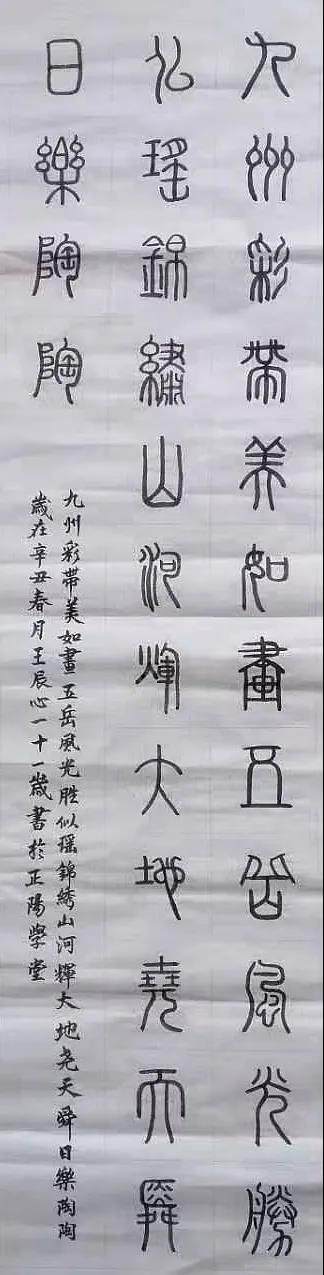 九州彩帶美如畫五岳風光勝
佀瑤錦繡山河煇大地堯天舜
日樂陶陶
九州彩带美如畫五岳風光胜似瑶錦绣山河輝大地尧天舜日樂陶陶
歲在辛丑春月王辰心一十一歲書於正陽學堂